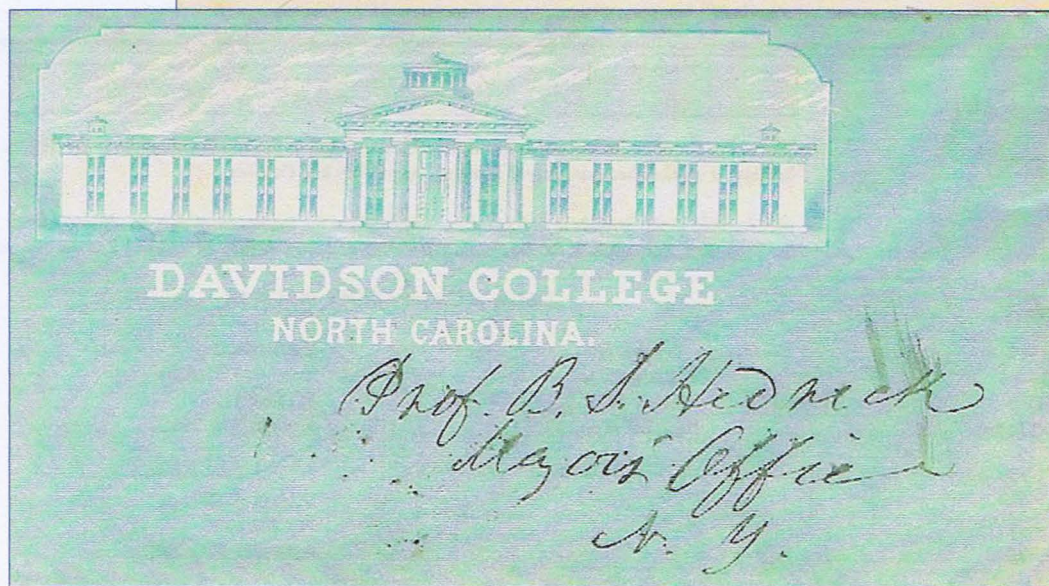 DAVIDSON COLLEGE
NORTH CAROLINA.
Prof. B. S. Hedrick
Mayor's Office
N. Y.